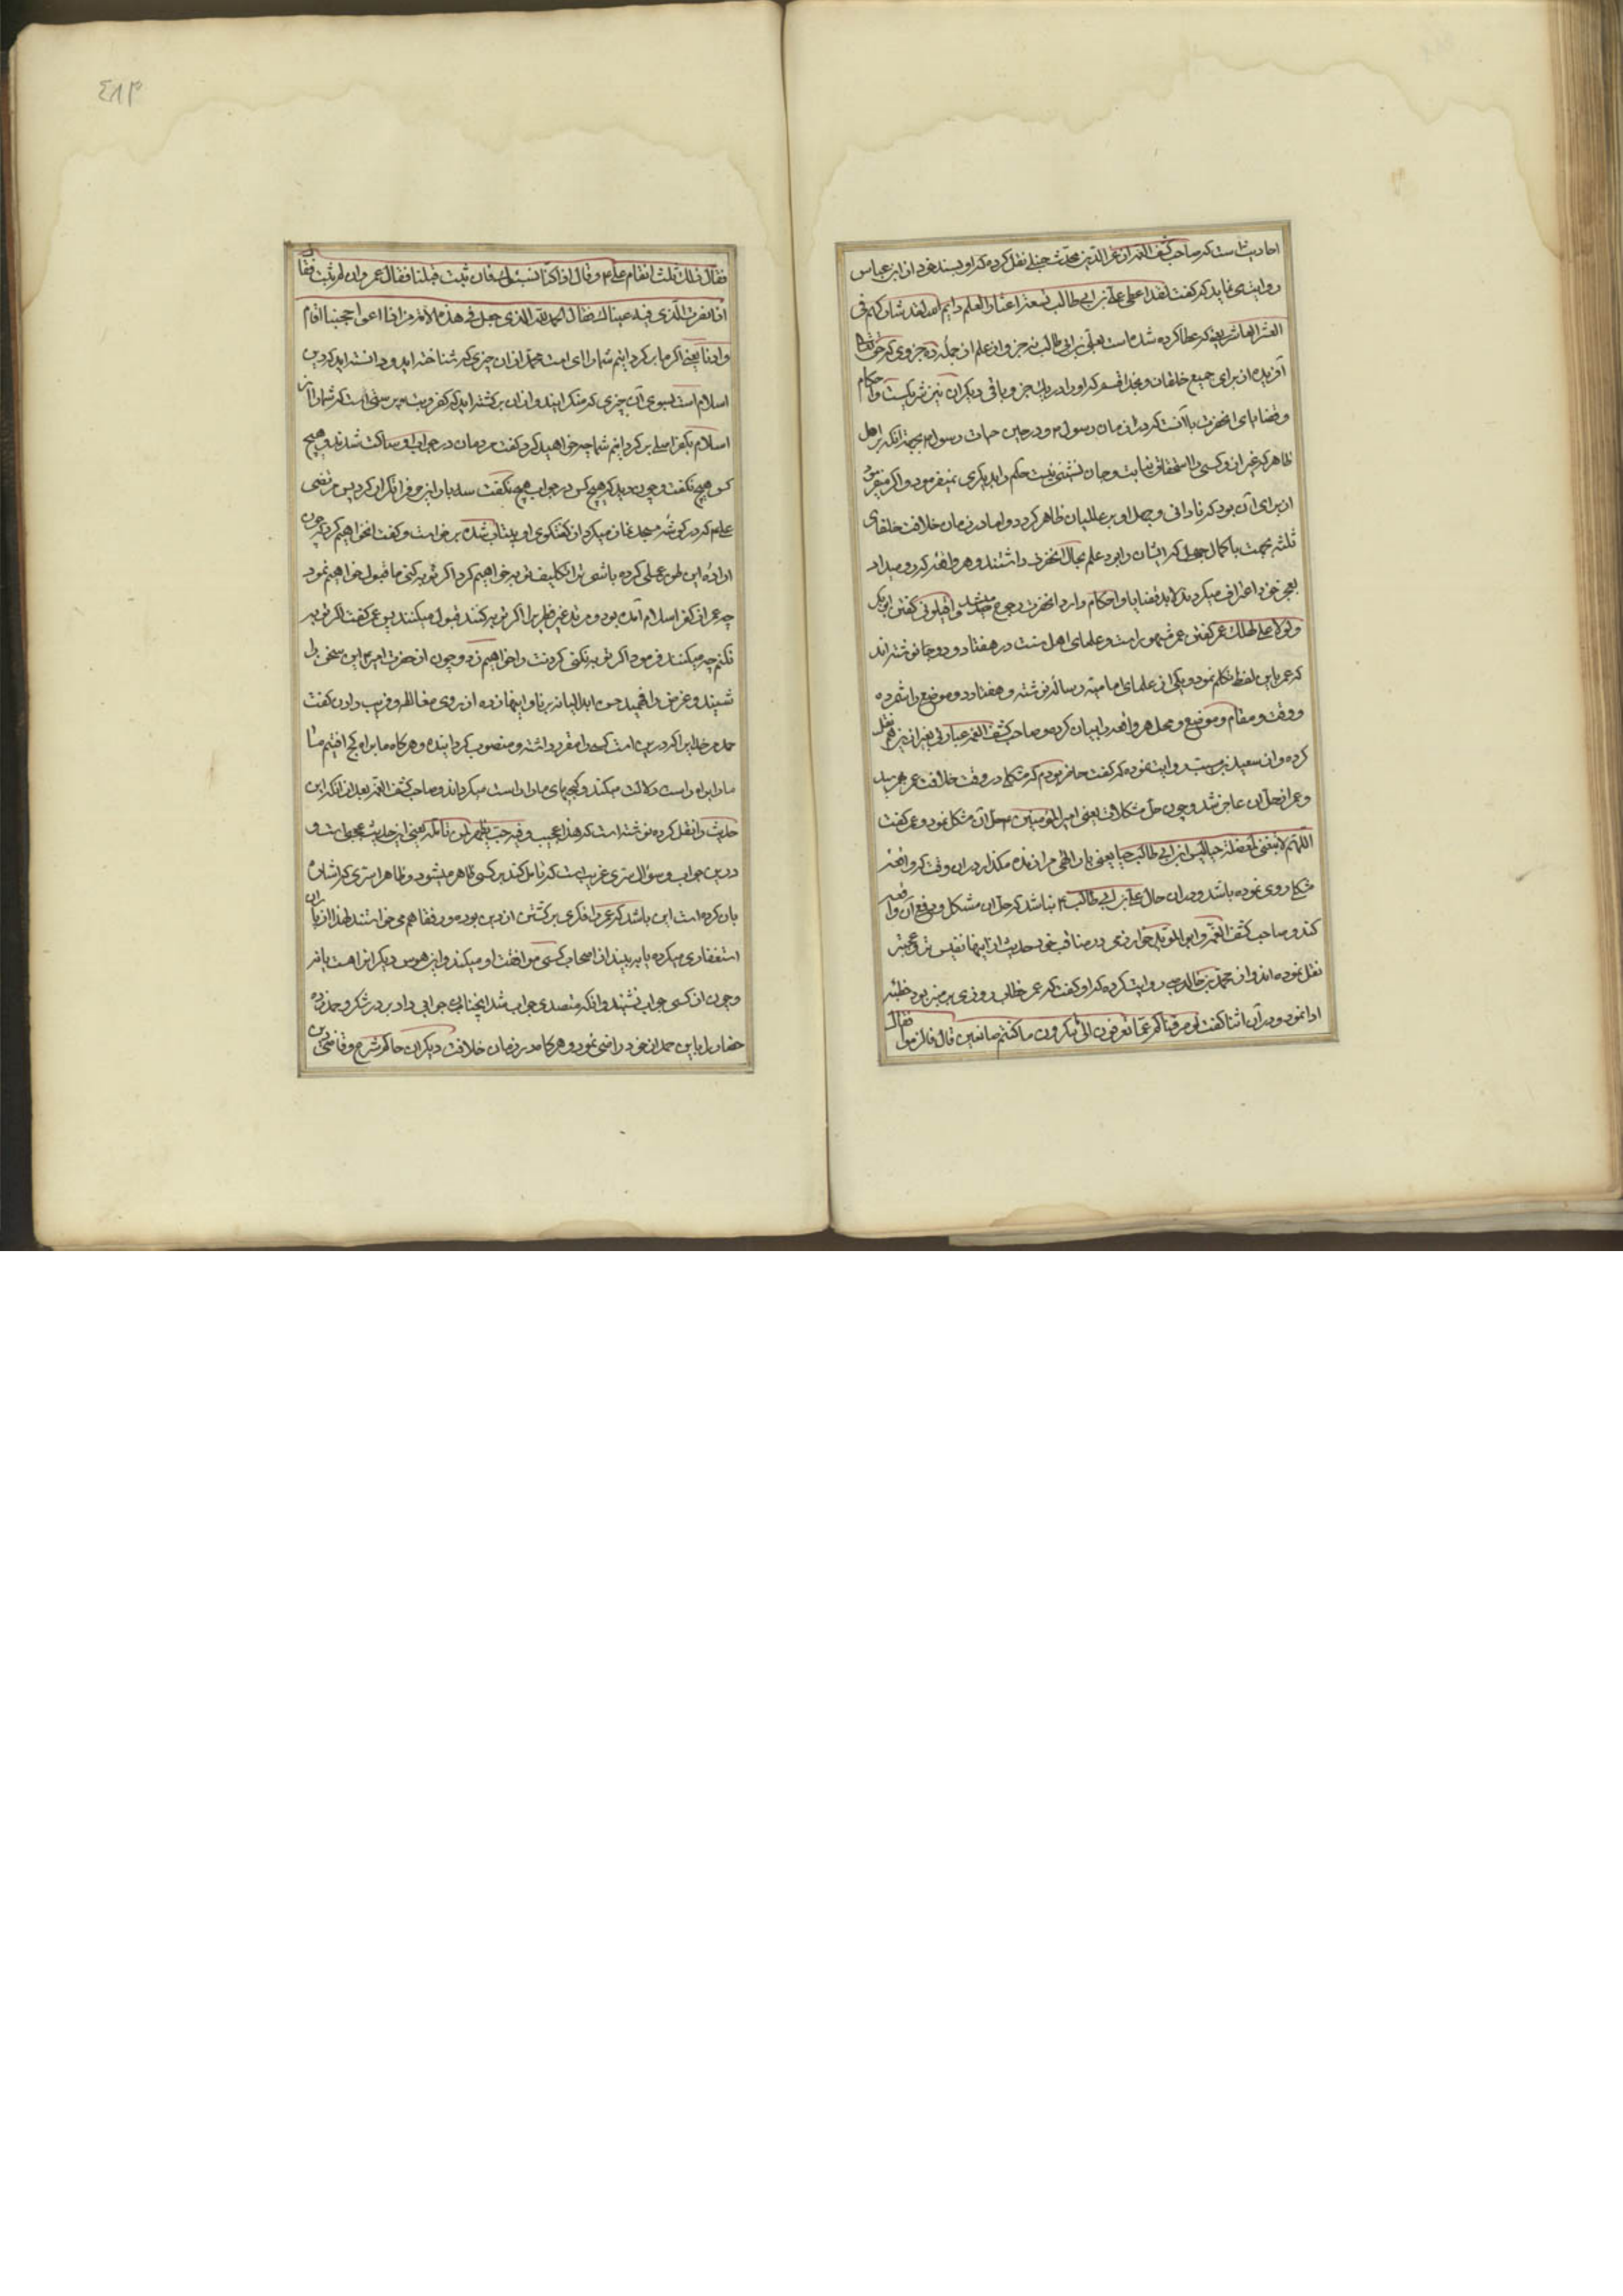 احادیث است که صاحب کشف الغمه از عز الدین محدث حنبلی نقل کرده که او بسند خود از ابن عباس
روایت می نماید که گفت لقد اعطی علی بن ابی طالب تسعة اعشار العلم وایم الله لقد شارککم فی
العشر العاشر یعنی که عطا کرده شده است بعلی بن ابی طالب نه جزو از علم از جمله ده جزوی که حق تعالی
آفریده از برای جمیع خلقان و بخدا قسم که او را در یک جزو باقی دیگران نیز شریکست و احکام
و قضایای آنحضرت با آنست که در زمان رسول و در حین حیات رسول بجهة آنکه بر اهل
ظاهر که غیر از و کسی را استحقاق نیابت و جانشینی نیست حکم را بدیگری نمیفرمود و اگر میفرمود
از برای آن بود که نادانی و جهل او بر عالمیان ظاهر گردد و اما در زمان خلافت خلفای
ثلثه بجهت با کمال جهل که ایشان را بود علم بحال آنحضرت داشتند و هر واقعه که رو میداد
بعجز خود اعتراف میکردند لابد قضایا و احکام وارد آنحضرت رجوع میشد و اقیلونی گفتن ابو بکر
و لولا علی لهلک عمر گفتن عمر مشهور است و علمای اهل سنت در هفتاد و دو جا نوشته اند
که عمر باین لفظ تکلم نمود و یکی از علمای امامیه رساله نوشته و هفتاد و دو موضع را شمرده
و وقت و مقام و موضع و محل هر واقعه را بیان کرده و صاحب کشف الغمه عبارتی بغیر از نیز هم نقل
کرده و از سعید بن مسیب روایت نموده که گفت حاضر بودم که مشکلی در وقت خلافت عمر بهم رسید
و عمر از حل آن عاجز شد و چون حل مشکلات یعنی امیر المؤمنین حل آن مشکل نمود و عمر گفت
اللهم لا تبقنی لمعضلة حیا لیس ابن ابی طالب حیا یعنی بار الهی مرا زنده مگذار در آن وقت که واقعه
مشکلی روی نموده باشد و در آن حال علی بن ابی طالب نباشد که حل آن مشکل و رفع آن واقعه
کند و صاحب کشف الغمه و ابن المؤید خوارزمی در مناقب خود حدیث از اینها نفیس تر و عجیبتر
نقل نموده اند و از محمد بن خالد روایت کرده که او گفت که عمر خطاب روزی بر منبر بود خطبه
ادا نمود و در آن اثنا گفت لو صرفناکم عما تعرفون الی ما تنکرون ما کنتم صانعین قال فارموا فقال
٤٨٣
فقال ذلک ثلث فقام علی و قال اذا کنا نستتوبک فان تبت قبلنا فقال عمر وان لم اتب فقال
اذا نضرب الذی فیه عیناک فقال الحمد لله الذی جعل فی هذه الامة من اذا اعوججنا اقام
واودنا یعنی اگر ما برگردانیم شما را ای امت محمد از آن چیزی که شناخته اید و دانسته اید که دین
اسلام است بسوی آن چیزی که منکر ایید و از آن برگشته اید که کفر و بت پرستی است که شما را از
اسلام بکفر اصلی برگردانیم شما چه خواهید کرد گفت مردمان در جواب او ساکت شدند و هیچ
کس هیچ نگفت و چون دید که هیچکس در جواب هیچ نگفت سه بار این حرف را تکرار کرد پس مرتضی
علی که در گوشه مسجد نماز میکرد از گفتگوی او بیتاب شده برخاست و گفت ما خواهیم کرد که چون
اراده این طور عملی کرده باشی ترا تکلیف توبه خواهیم کرد اگر توبه کنی ما قبول خواهیم نمود
چه عمر از کفر اسلام آمده بود و مرتد غیر فطری را اگر توبه کنند قبول میکنند پس عمر گفت اگر توبه
نکنم چه میکنید فرمود اگر توبه نکنی گردنت را خواهیم زد و چون از حضرت امیر این سخن را
شنید و غرض را فهمید از روی مغالطه و فریب دادن گفت
حمد مر خدای را که در بین امت کسی را مقرر داشته و منصوب گردانیده و هرگاه ما براه کج افتیم مثلا
ما را براه راست دلالت میکند و کجیهای ما را راست میگرداند و صاحب کشف الغمه بعد از آنکه این
حدیث را نقل کرده نوشته است که هذا عجیب و فیه خب یظهر لمن تأمله یعنی این حدیث عجیبی است و
در این جواب و سؤال سری غریب است که تامل کند بر کسی ظاهر میشود و ظاهرا سری که اشاره
بان کرده است این باشد که عمر را فکری برگشتن از دین بوده و رفقا هم می خواستند لهذا از یاران
استفساری میکرده تا ببیند از اصحاب کسی موافقت او میکند و این هوس دیگر انرا هست یا نه
و چون از کسی جواب نشنید و آنکه متصدی جواب شد اینچنان جوابی داد بر در شکر و حمد زده
حضار را باین حمد از خود راضی نمود و هرگاه در زمان خلافت دیگران حاکم شرع و قاضی دین